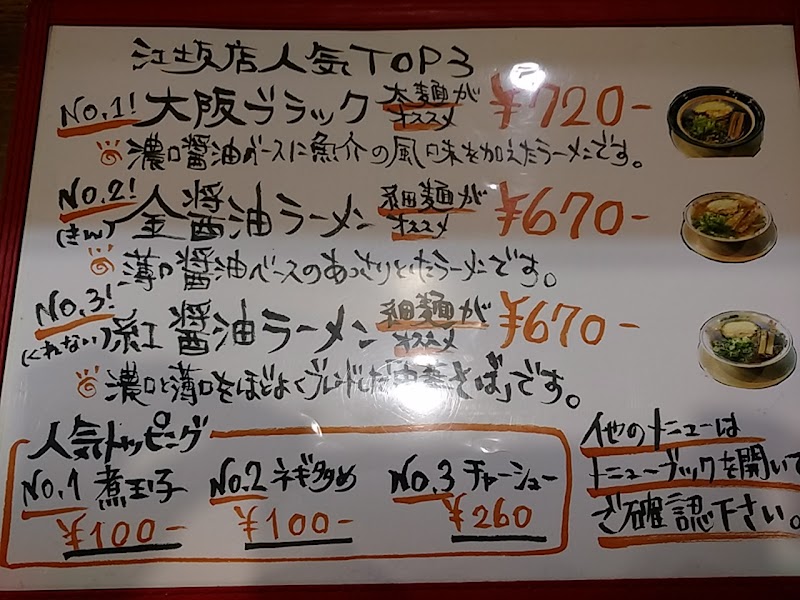 江坂店人気TOP3
No.1! 大阪ブラック 太麺がオススメ ¥720-
濃口醤油ベースに魚介の風味を加えたラーメンです。
No.2! (きん) 金醤油ラーメン 細麺がオススメ ¥670-
薄口醤油ベースのあっさりとしたラーメンです。
No.3! (くれない) 紅醤油ラーメン 細麺がオススメ ¥670-
濃口と薄口をほどよくブレンドした「中華そば」です。
人気トッピング
No.1 煮玉子 ¥100-
No.2 ネギ多め ¥100-
No.3 チャーシュー ¥260
他のメニューは
メニューブックを開いて
ご確認下さい。